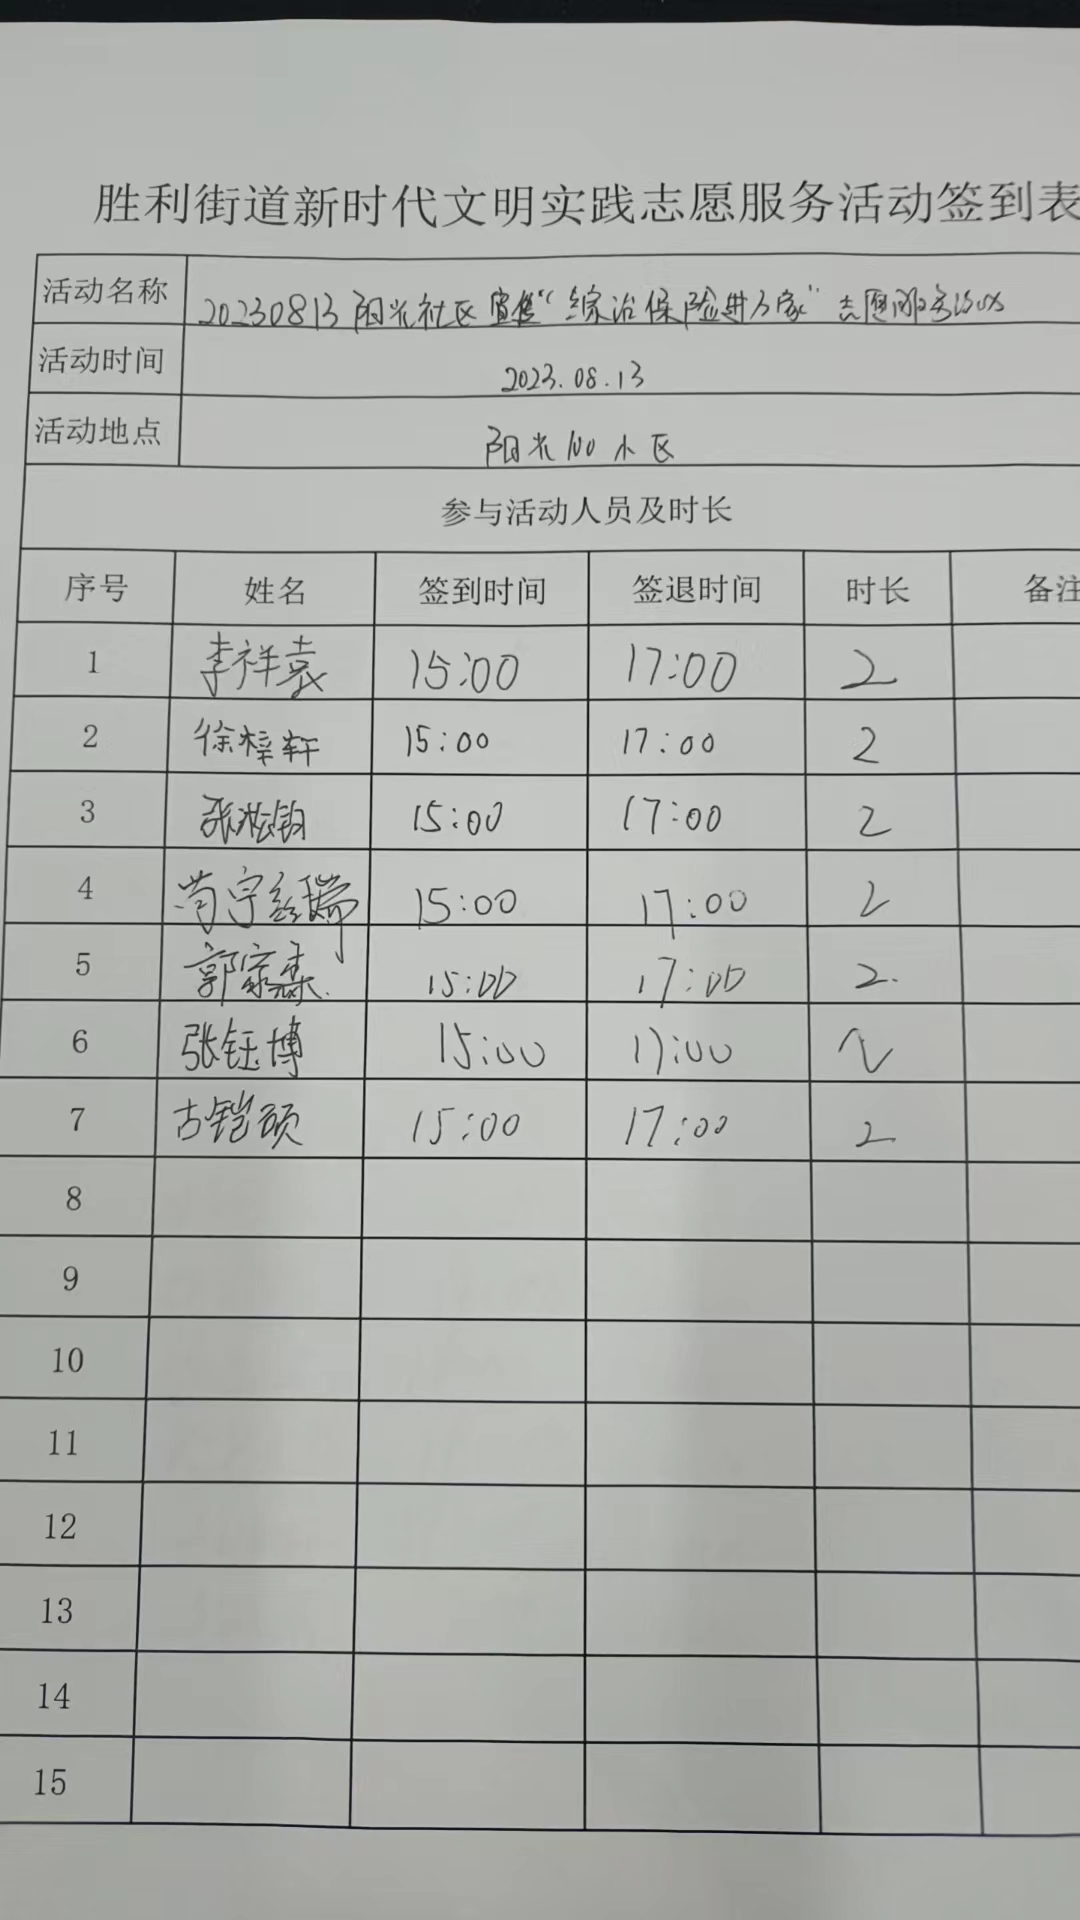 胜利街道新时代文明实践志愿服务活动签到表
活动名称 20230813阳光社区宣传“综治保险进万家”志愿服务活动
活动时间 2023.08.13
活动地点 阳光100小区
参与活动人员及时长
序号 姓名 签到时间 签退时间 时长 备注
1 李祥袁 15:00 17:00 2
2 徐梓轩 15:00 17:00 2
3 15:00 17:00 2
4 15:00 17:00 2
5 郭家森 15:00 17:00 2.
6 张钰博 15:00 17:00 2
7 古铠硕 15:00 17:00 2
8
9
10
11
12
13
14
15